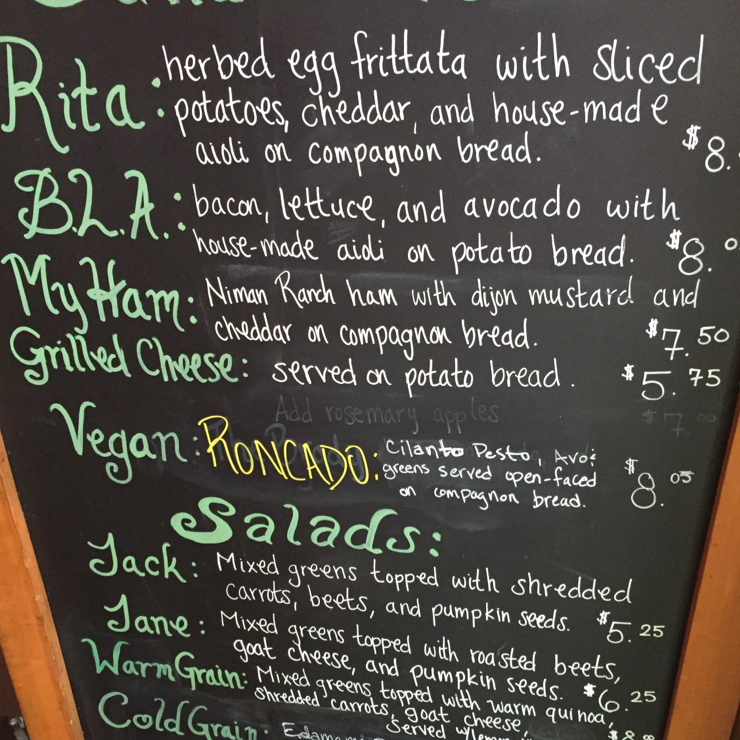 Rita: herbed egg frittata with sliced
potatoes, cheddar, and house-made
aioli on compagnon bread. $8.
B.L.A.: bacon, lettuce, and avocado with
house-made aioli on potato bread. $8.0
My Ham: Niman Ranch ham with dijon mustard and
cheddar on compagnon bread. $7.50
Grilled Cheese: served on potato bread. $5.75
Add rosemary apples $7.
Vegan: RONCADO: Cilanto Pesto, Avo &
greens served open-faced
on compagnon bread. $8.05
Salads:
Jack: Mixed greens topped with shredded
carrots, beets, and pumpkin seeds. $5.25
Jane: Mixed greens topped with roasted beets,
goat cheese, and pumpkin seeds. $6.25
Warm Grain: Mixed greens topped with warm quinoa,
shredded carrots, goat cheese,
served w/lemon
Cold Grain: